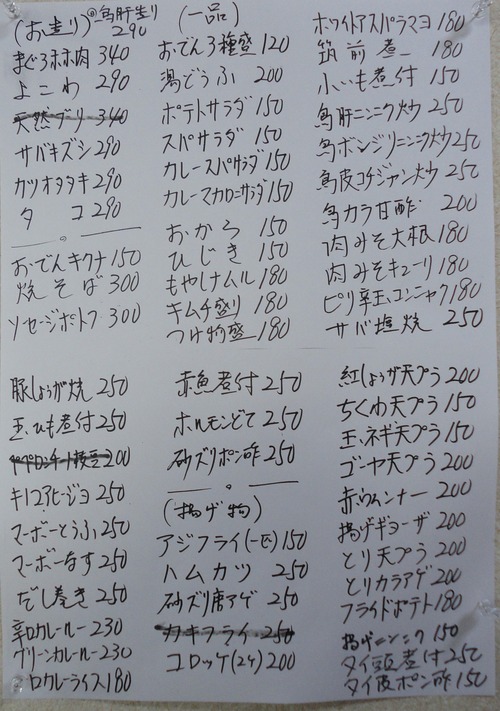 (お造り) @鳥肝造り 290
まぐろホホ肉 340
よこわ 290
天然ブリ 340
サバキズシ 290
カツオタタキ 290
タコ 290
おでんキクナ 150
焼そば 300
ソセージポトフ 300
(一品)
おでん3種盛 120
湯どうふ 200
ポテトサラダ 150
スパサラダ 150
カレースパサラダ 150
カレーマカロニサラダ 150
おから 150
ひじき 150
もやしナムル 180
キムチ盛り 180
つけ物盛 180
ホワイトアスパラマヨ 180
筑前煮 180
小いも煮付 150
鳥肝ニンニク炒 250
鳥ボンジリニンニク炒 250
鳥皮コチジャン炒 250
鳥カラ甘酢 200
肉みそ大根 180
肉みそキューリ 180
ピリ辛玉コンニャク 180
サバ塩焼 250
豚しょうが焼 250
玉ひも煮付 250
200
キノコアヒージョ 250
マーボーとうふ 250
マーボーなす 250
だし巻き 250
辛口カレールー 230
グリーンカレールー 230
口カレーライス 180
赤魚煮付 250
ホルモンどて 250
砂ズリポン酢 250
(揚げ物)
アジフライ(一匹) 150
ハムカツ 250
砂ズリ唐アゲ 250
カキフライ 250
コロッケ(2ケ) 200
紅しょうが天プラ 200
ちくわ天プラ 150
玉ネギ天プラ 150
ゴーヤ天プラ 200
赤ウインナー 200
揚げギョーザ 200
とり天プラ 200
とりカラアゲ 200
フライドポテト 180
揚げニンニク 150
タイ頭煮付 250
タイ皮ポン酢 150